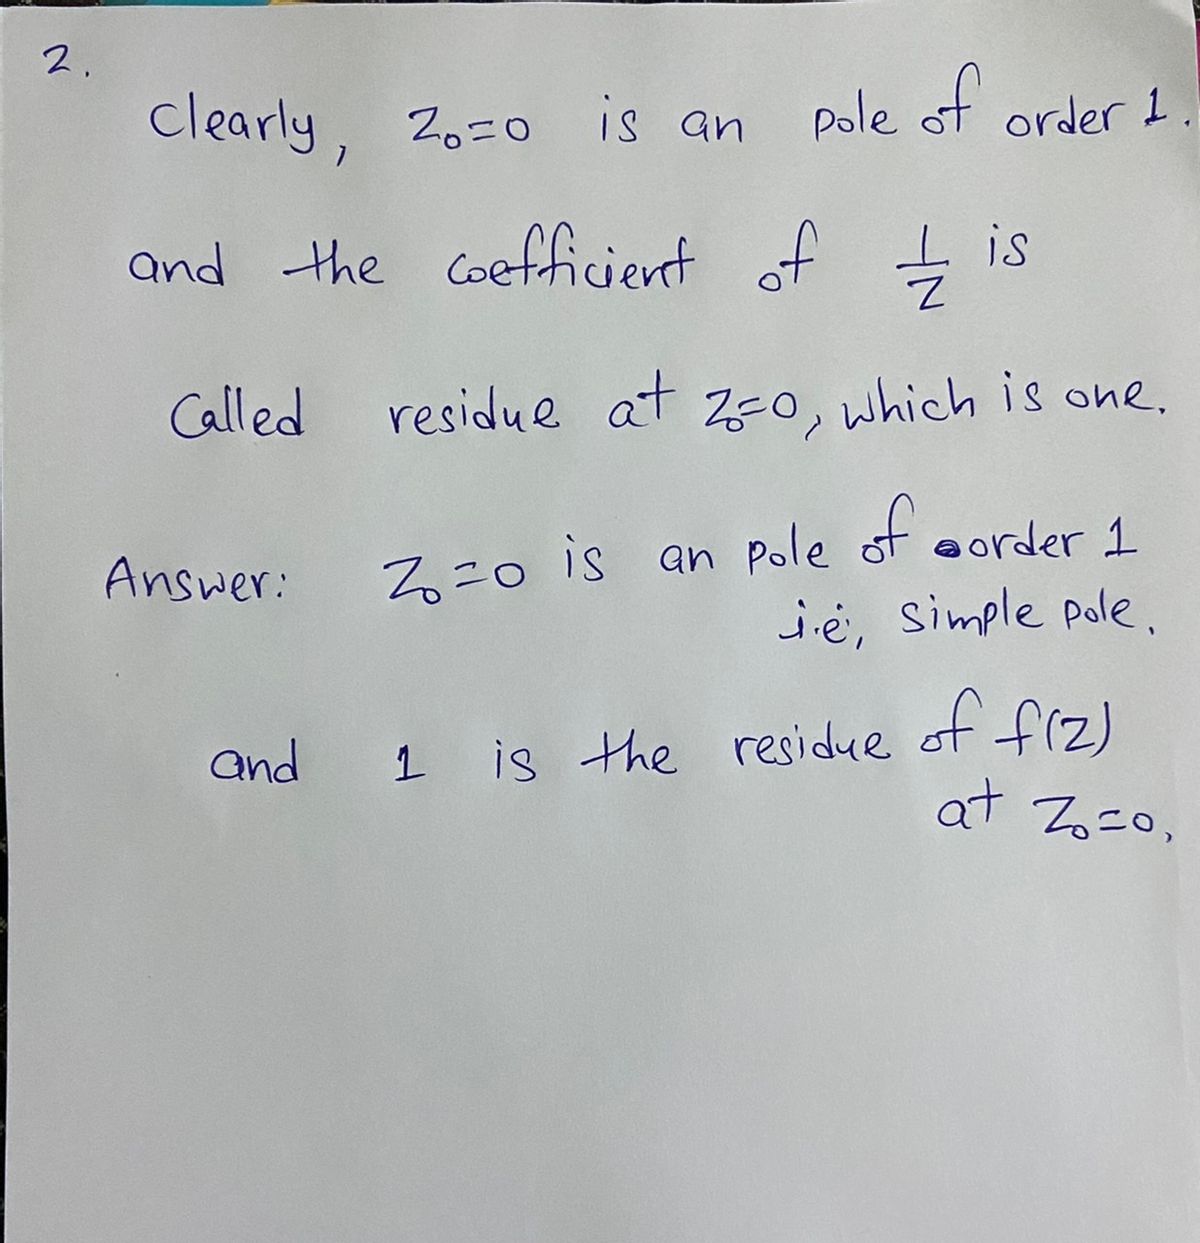 2.
Clearly, Z₀=0 is an pole of order 1.
and the coefficient of 1/Z is
Called residue at Z₀=0, which is one.
Answer: Z₀=0 is an pole of order 1
i.e, simple pole.
and 1 is the residue of f(z)
at Z₀=0,